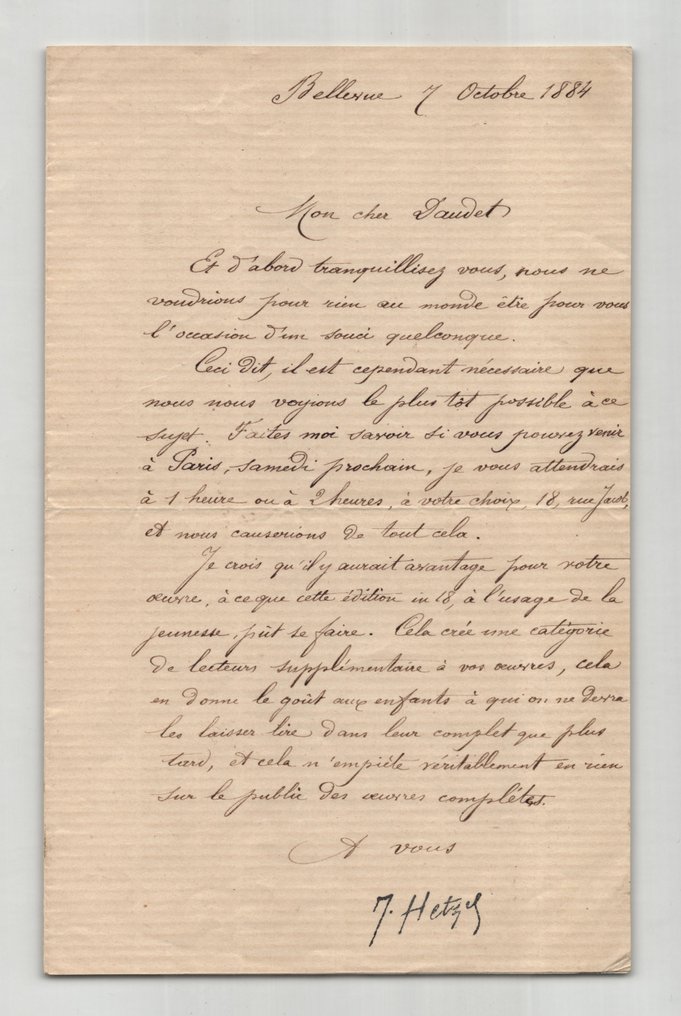 Bellevue 7 Octobre 1884
Mon cher Daudet
Et d'abord tranquillisez vous, nous ne
voudrions pour rien au monde être pour vous
l'occasion d'un souci quelconque.
Ceci dit, il est cependant nécessaire que
nous nous voyions le plus tôt possible à ce
sujet. Faites moi savoir si vous pouvez venir
à Paris, samedi prochain, je vous attendrais
à 1 heure ou à 2 heures, à votre choix, 18, rue Jacob,
et nous causerions de tout cela.
Je crois qu'il y aurait avantage pour votre
œuvre, à ce que cette édition in 18, à l'usage de la
jeunesse, pût se faire. Cela crée une catégorie
de lecteurs supplémentaire à vos œuvres, cela
en donne le goût aux enfants à qui on ne devra
les laisser lire dans leur complet que plus
tard, et cela n'empiète véritablement en rien
sur le public des œuvres complètes.
A vous
J. Hetzel